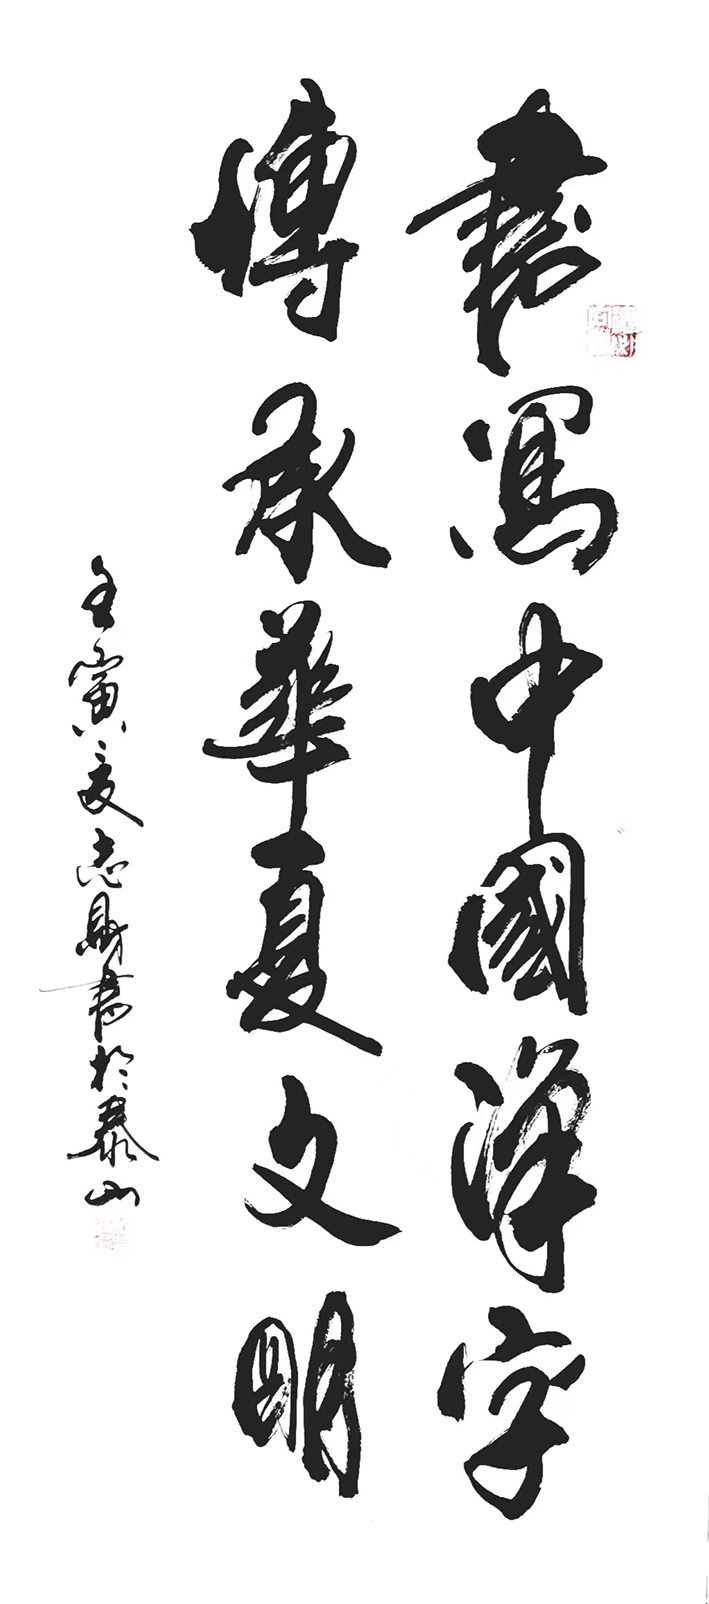 書寫中國漢字
傳承華夏文明
壬寅夏志財書於泰山